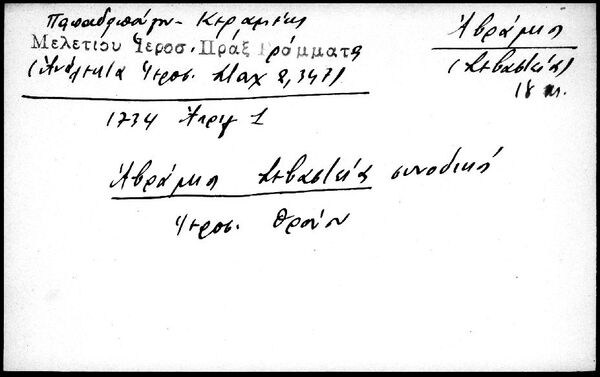 Παπαδοπούλου - Κεραμέως
Μελετίου Ἱεροσ. Πράξ Γράμματα
(Ἀνάλεκτα Ἱεροσ. Σταχ 2, 347)
Ἀβράμιος
(Σεβαστείας)
18 αι.
1734 Ἀπριλ 1
Ἀβράμιος Σεβαστείας συνοδικός
Ἱεροσ. Θρόνου